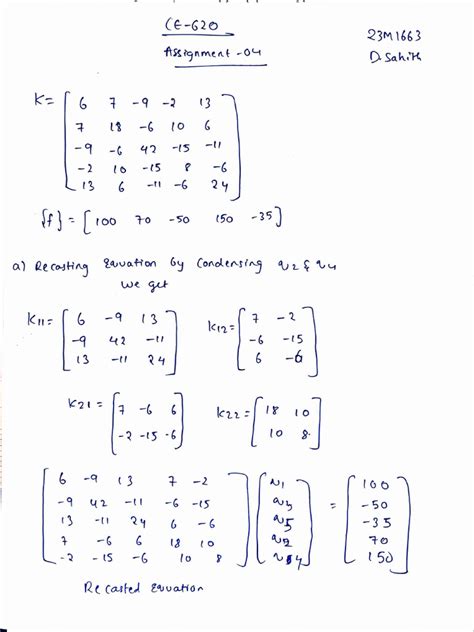 CE-620
Assignment -04
23M1663
D. Sahith
K= [ 6 7 -9 -2 13
7 18 -6 10 6
-9 -6 42 -15 -11
-2 10 -15 8 -6
13 6 -11 -6 24 ]
{f} = [100 70 -50 150 -35]
a) Recasting Equation by Condensing u2 & u4
we get
K11= [ 6 -9 13
-9 42 -11
13 -11 24 ]
K12= [ 7 -2
-6 -15
6 -6 ]
K21 = [ 7 -6 6
-2 -15 -6 ]
K22 = [ 18 10
10 8 ]
[ 6 -9 13 7 -2 ] [ u1 ] [ 100 ]
[ -9 42 -11 -6 -15 ] [ u3 ] = [ -50 ]
[ 13 -11 24 6 -6 ] [ u5 ] [ -35 ]
[ 7 -6 6 18 10 ] [ u2 ] [ 70 ]
[ -2 -15 -6 10 8 ] [ u4 ] [ 150 ]
Recasted Equation